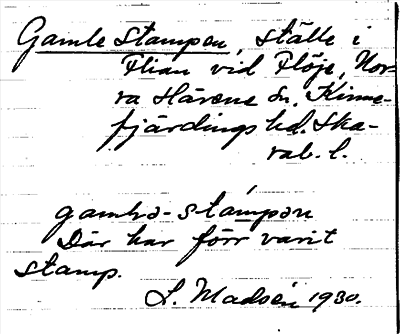 Gamle stampen, ställe i
Flian vid Flöje, Nor-
ra Härene sn, Kinne-
fjärdings hd. Ska-
rab. l.
gamla-stampan
Där har förr varit
stamp.
L. Madsén 1930.